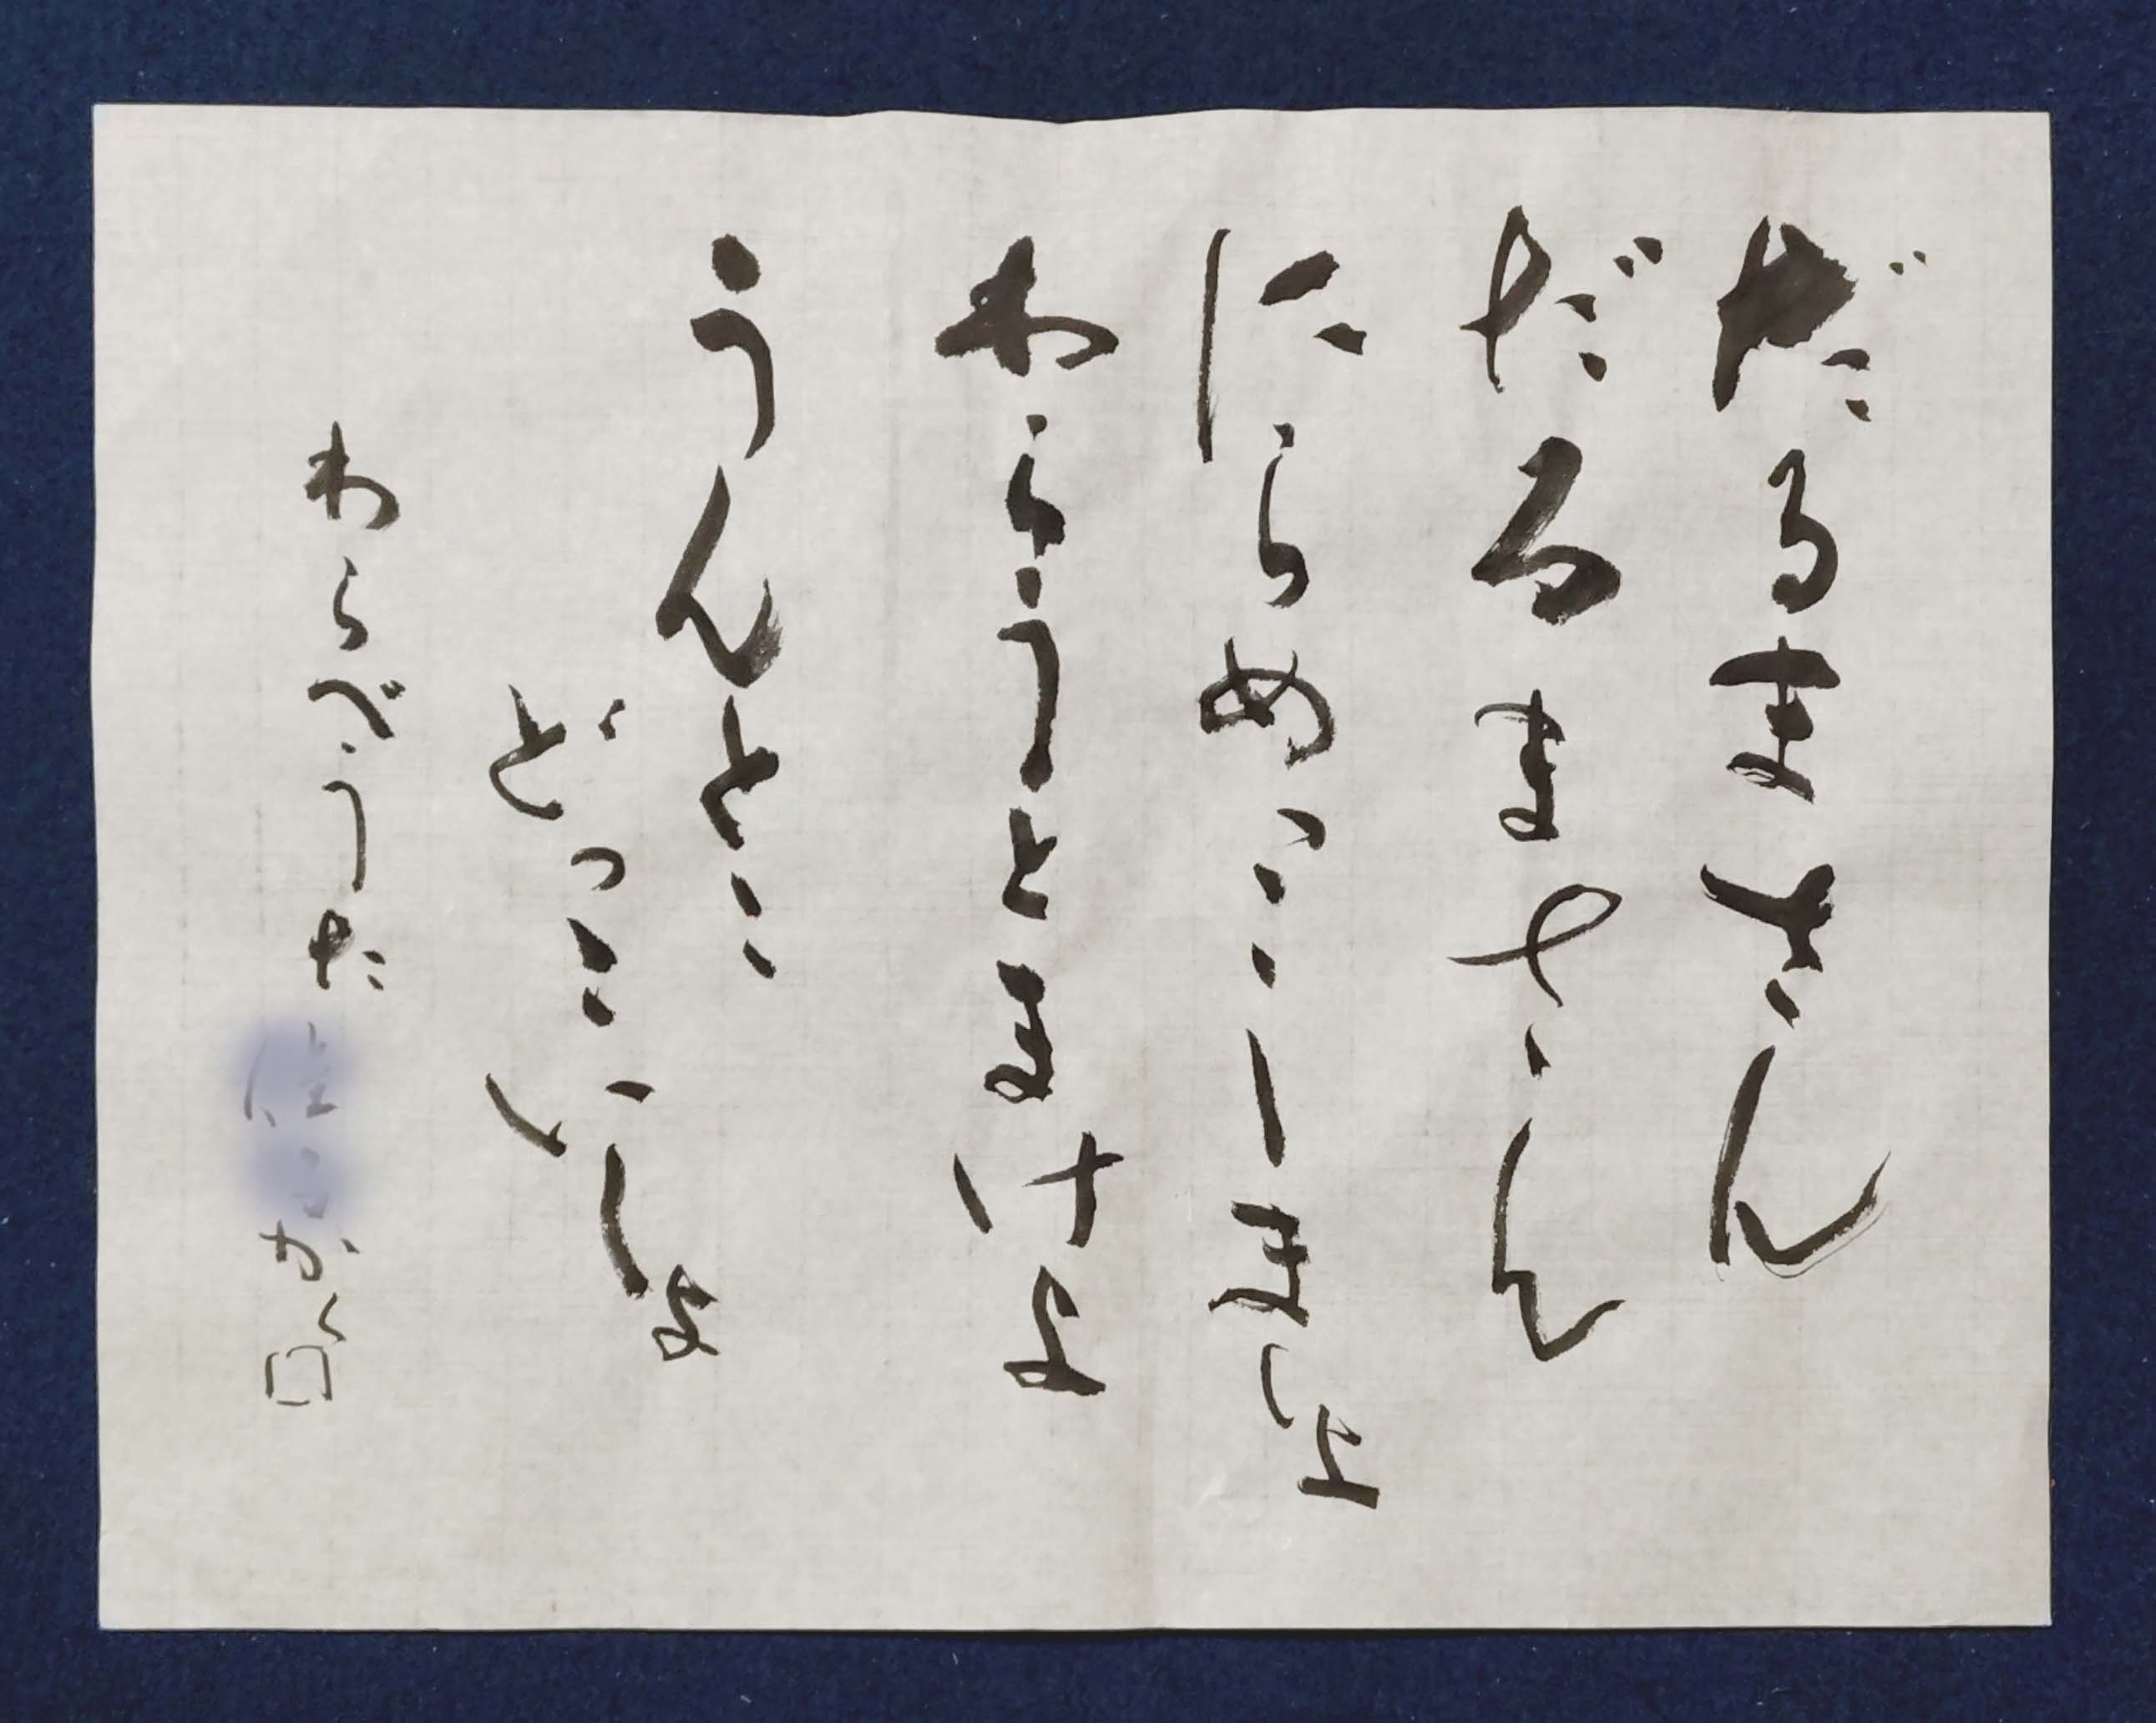 だるまさん
だるまさん
にらめっこしましょ
わらうとまけよ
うんとこ
どっこいしょ
わらべうた
かく